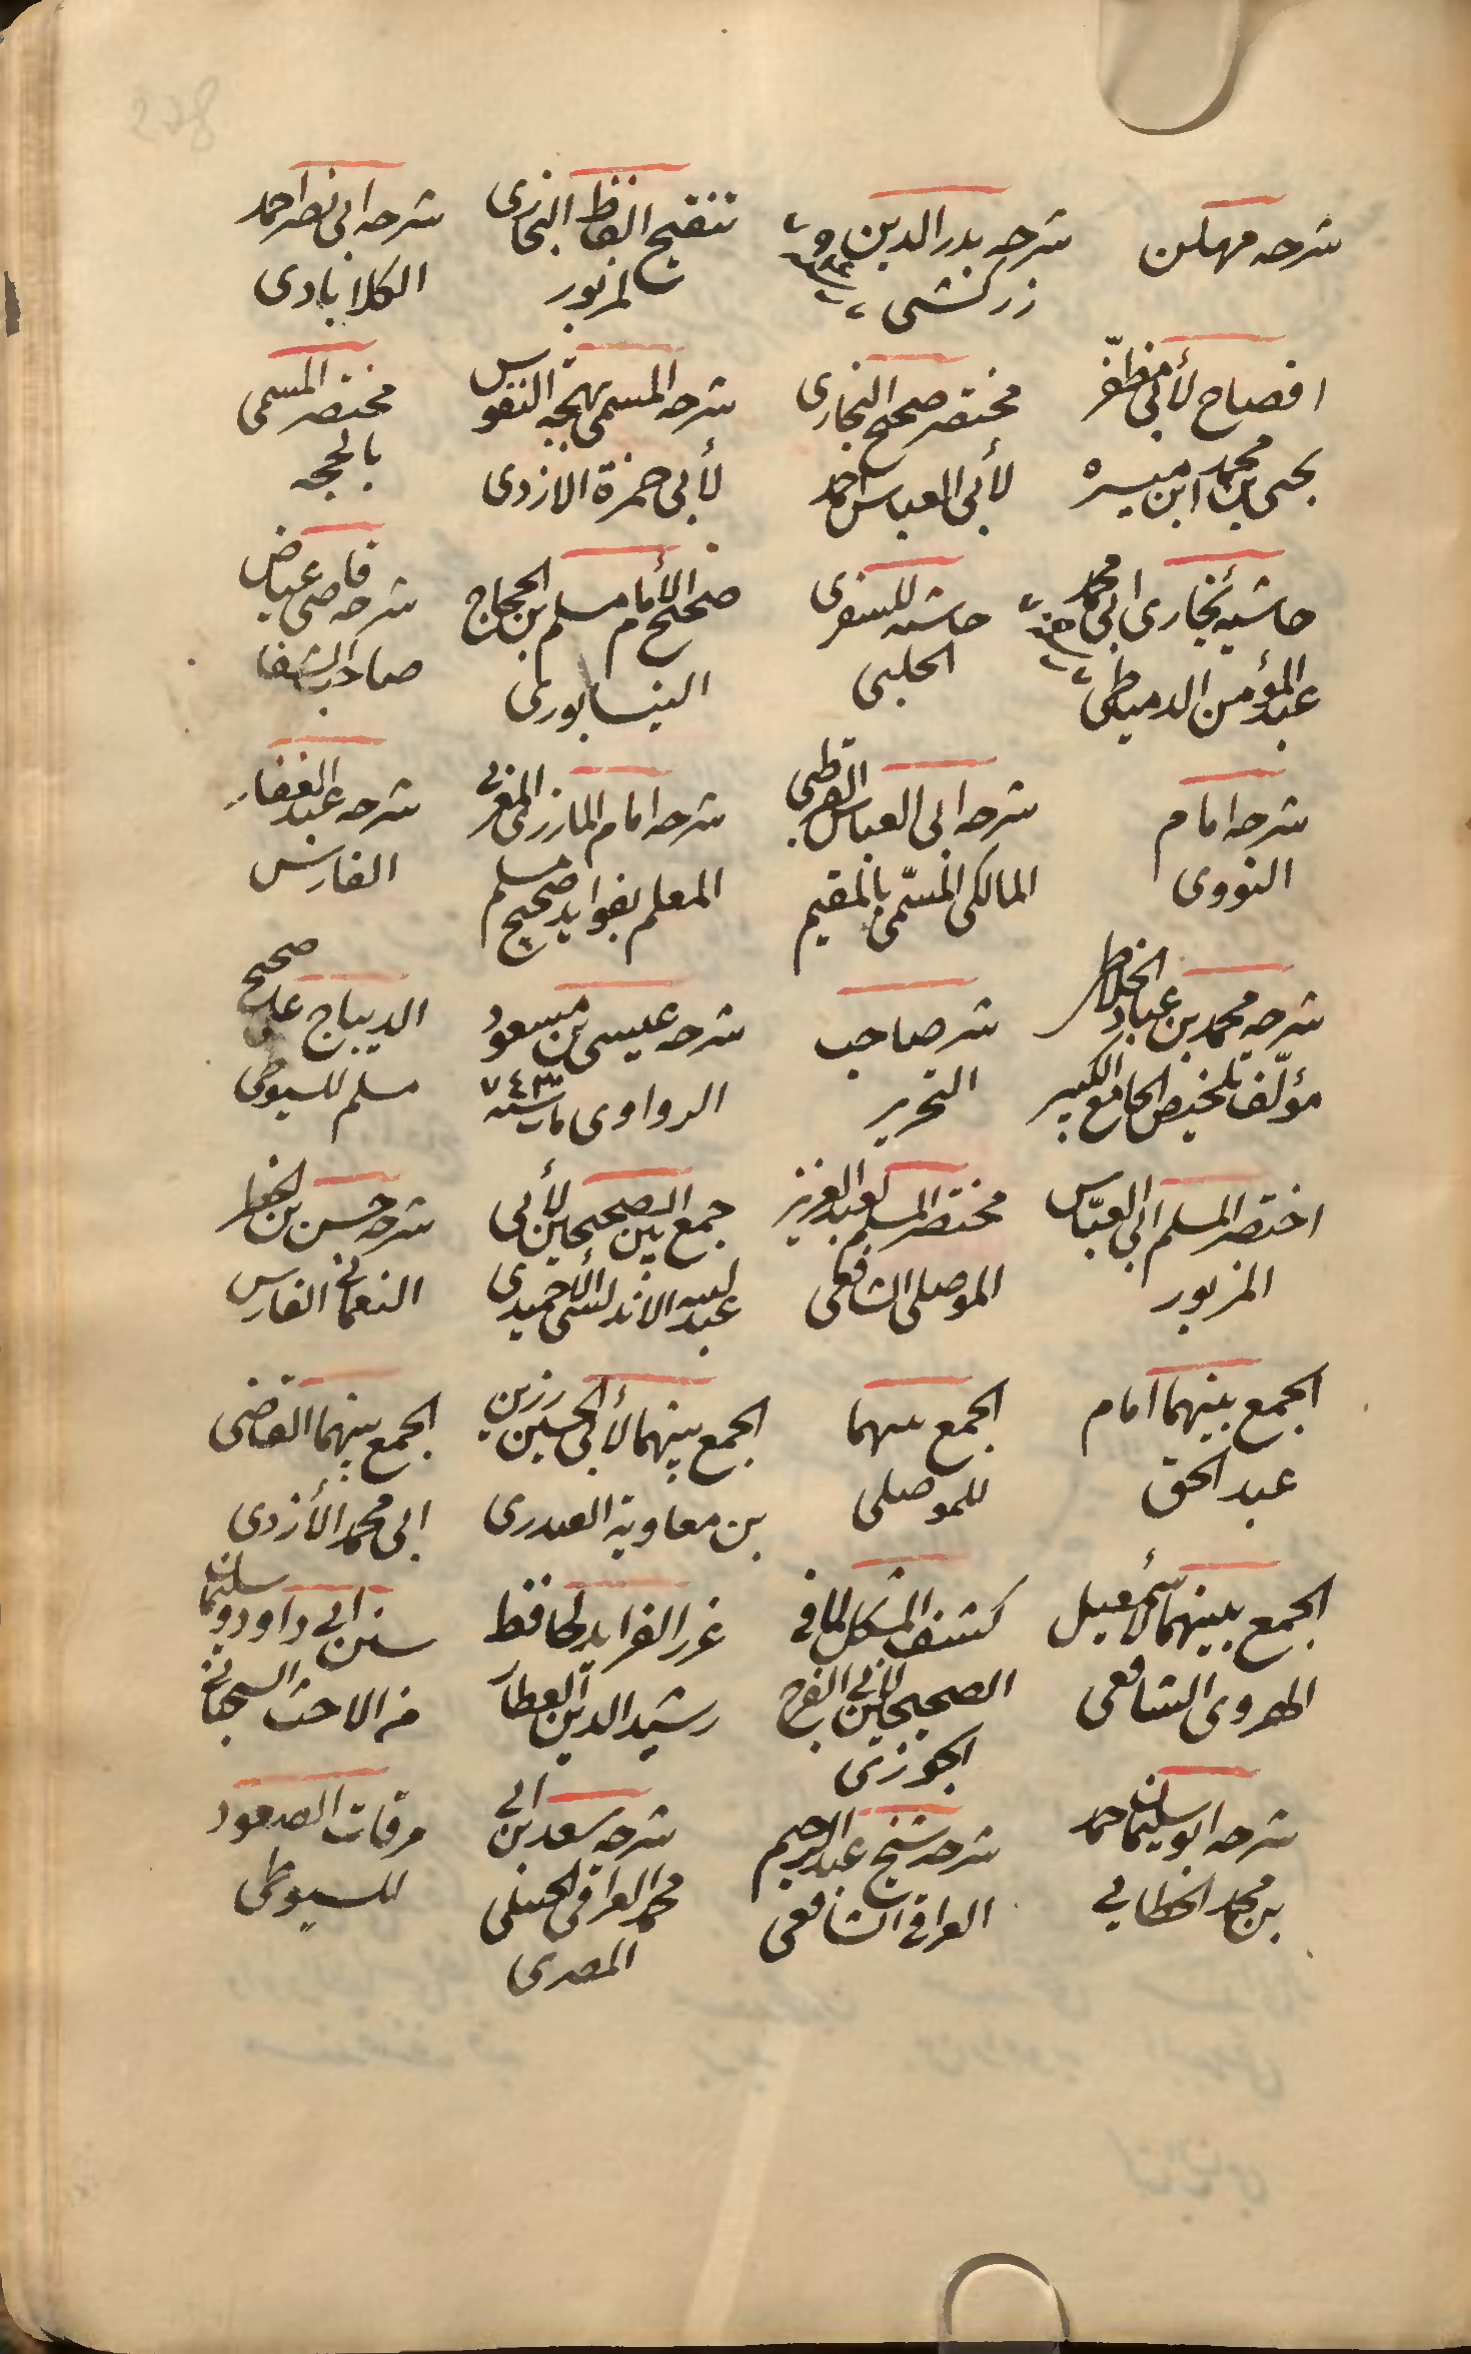 278
شرحه مهلن
شرحه بدر الدين
زركشى
تنقيح الفاظ البخارى
لمزبور
شرحه ابى نصر احمد
الكلابادى
افصاح لأبى مظفّر
يحيى بن محمد ابن ميسره
مختصر صحيح البخارى
لأبى العباس احمد
شرحه المسمى بهجه النفوس
لأبى حمزة الازدى
مختصر المسمى
بالحجه
حاشيۀ بخارى ابى محمد
عبد المؤمن الدمياطى
حاشيه للسفرى
الحلبى
صحيح الأمام مسلم بن الحجاج
النيسابورى
شرحه قاضى عياض
صاحب الشفا
شرحه امام
النووى
شرحه ابى العباس القرطبى
المالكى المسمّى بالمقيم
شرحه امام المازرى المغربى
المعلم بفوايد صحيح مسلم
شرحه عبد الغفار
الفارسى
شرحه محمد بن عباد الخلاطى
مؤلّف تلخيص الجامع الكبير
شر صاحب
التحرير
شرحه عيسى بن مسعود
الرواوى مات سنه ٧٤٣
الديباج على صحيح
مسلم للسيوطى
اختصر المسلم ابى العبّاس
المزبور
مختصر المسلم لعبد العزيز
الموصلى الشافعى
جمع بين الصحيحين لأبى
عبد الله الاندلسى الحميدى
شرحه حسن بن الخطير
النعمانى الفارسى
الجمع بينهما امام
عبد الحق
الجمع بينهما
للموصلى
الجمع بينهما لأبى الحسين رزين
بن معاوية العبدرى
الجمع بينهما القاضى
ابى محمد الأزدى
الجمع بينهما لأسمعيل
الهروى الشافعى
كشف المشكل لما فى
الصحيحين لابى الفرج
الجوزى
غرر الفرايد لحافظ
رشيد الدين العطار
سنن ابى داودو سليمان
السجستانى
شرحه ابو سليمان احمد
بن محمد الخطابى
شرحه شيخ عبد الرحيم
العراقى الشافعى
شرحه سعد بن ابى
محمد العراقى الحنبلى
المصرى
مرقات الصعود
للسيوطى